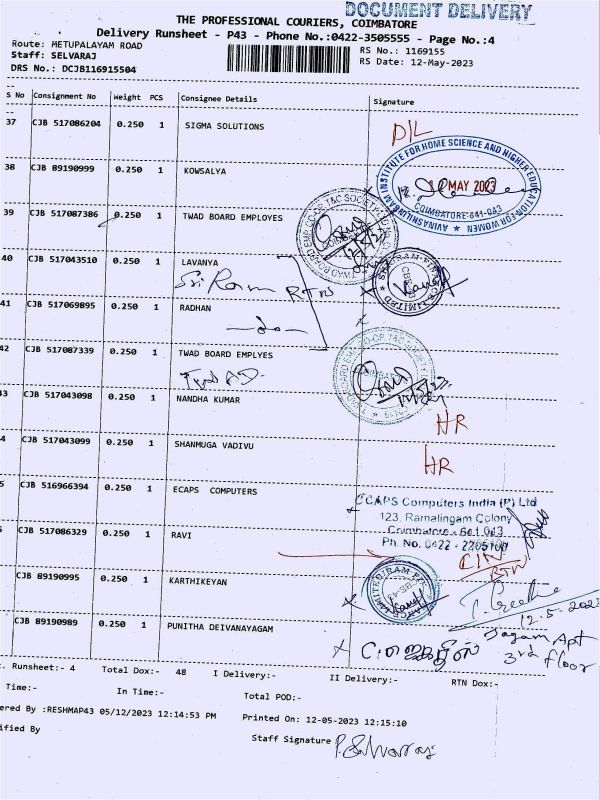 DOCUMENT DELIVERY
THE PROFESSIONAL COURIERS, COIMBATORE
Delivery Runsheet - P43 - Phone No.:0422-3505555 - Page No.:4
Route: METUPALAYAM ROAD
RS No.: 1169155
Staff: SELVARAJ
RS Date: 12-May-2023
DRS No.: DCJB116915504
S No Consignment No Weight PCS Consignee Details Signature
37 CJB 517086204 0.250 1 SIGMA SOLUTIONS D/L
38 CJB 89190999 0.250 1 KOWSALYA
AVINASHILINGAM INSTITUTE FOR HOME SCIENCE AND HIGHER EDUCATION FOR WOMEN
MAY 2023
COIMBATORE-641 043
39 CJB 517087386 0.250 1 TWAD BOARD EMPLOYES
40 CJB 517043510 0.250 1 LAVANYA
Sri Ram RTN
41 CJB 517069895 0.250 1 RADHAN
42 CJB 517087339 0.250 1 TWAD BOARD EMPLYES
Twad
43 CJB 517043098 0.250 1 NANDHA KUMAR HR
4 CJB 517043099 0.250 1 SHANMUGA VADIVU HR
5 CJB 516966394 0.250 1 ECAPS COMPUTERS
ECAPS Computers India (P) Ltd
123, Ramalingam Colony
Coimbatore - 641 043
Ph. No. 0422 -
5 CJB 517086329 0.250 1 RAVI
RTN
CJB 89190995 0.250 1 KARTHIKEYAN
12.5.2023
CJB 89190989 0.250 1 PUNITHA DEIVANAYAGAM
Apt
3rd floor
. Runsheet:- 4 Total Dox:- 48 I Delivery:- II Delivery:- RTN Dox:-
Time:- In Time:- Total POD:-
ered By :RESHMAP43 05/12/2023 12:14:53 PM Printed On: 12-05-2023 12:15:10
ified By Staff Signature